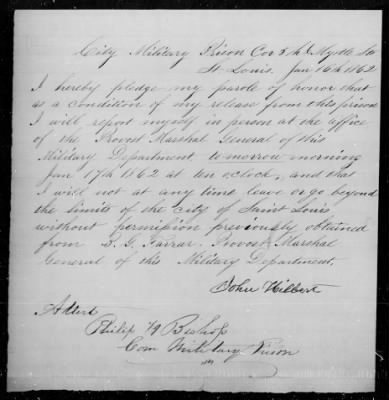 City Military Prison Cor 5th & Myrtle Sts
St Louis. Jan 16th 1862
I hereby pledge my parole of honor that
as a condition of my release from this prison
I will report myself in person at the office
of the Provost Marshal General of this
Military Department to morrow morning
Jan 17th 1862 at ten oclock, and that
I will not at any time leave or go beyond
the limits of the city of Saint Louis
without permission previously obtained
from B. G. Farrar. Provost Marshal
General of this Military Department.
John Hilbert
Attest
Philip H Bishop
Com Military Prison